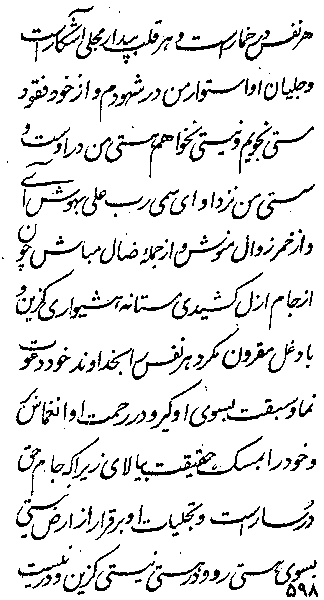 هر نفس در خمار است و هر قلب بیدار مجلی آشکار است
و جلیان او استوار من در شهودم و از خود مفقود
هستی نجویم و نیستی نخواهم هستی من در اوست و
مستی من نزد او ای سمی رب علی بهوش آی
و از خمر زوال منوش و از جمله ضال مباش چون
از جام ازل کشیدی مستانه هشیواری گزین و
با دغل مقرون مگرد هر نفس را بخداوند خود دعوت
نما و سبقت بسوی او گیر و در رحمت او انغماس کن
و خود را بمسک حقیقت بیالای زیرا که جام حق
در کنار است و تجلیات او برقرار از ارض نیستی
بسوی هستی رو و در هستی نیستی گزین و در نیست
۵۹۸